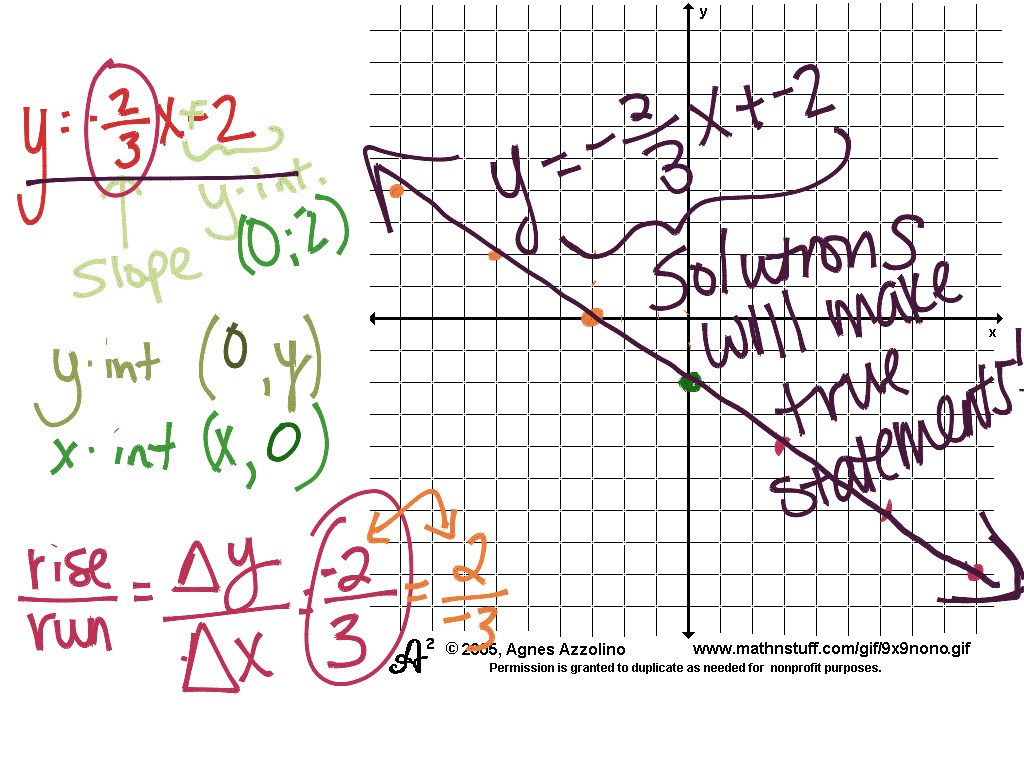 y = -2/3 x + -2
slope
y-int.
(0, -2)
y-int (0, y)
x-int (x, 0)
rise/run = Δy/Δx = -2/3 = 2/-3
y
x
y = -2/3 x + -2
solutions
will make
true
statements!
A² © 2005, Agnes Azzolino www.mathnstuff.com/gif/9x9nono.gif
Permission is granted to duplicate as needed for nonprofit purposes.